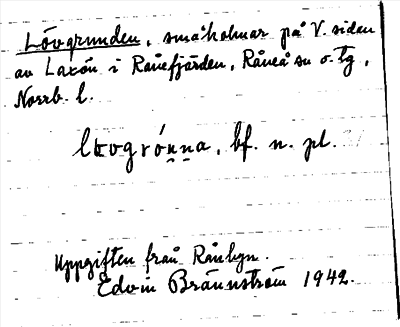 Lövgrunden, småholmar på V. sidan
av Laxön i Rånefjärden, Råneå sn o. tg,
Norrb. l.
lövgró̱ṉṉa, bf. n. pl.
Uppgiften från Rånbyn.
Edvin Brännström 1942.